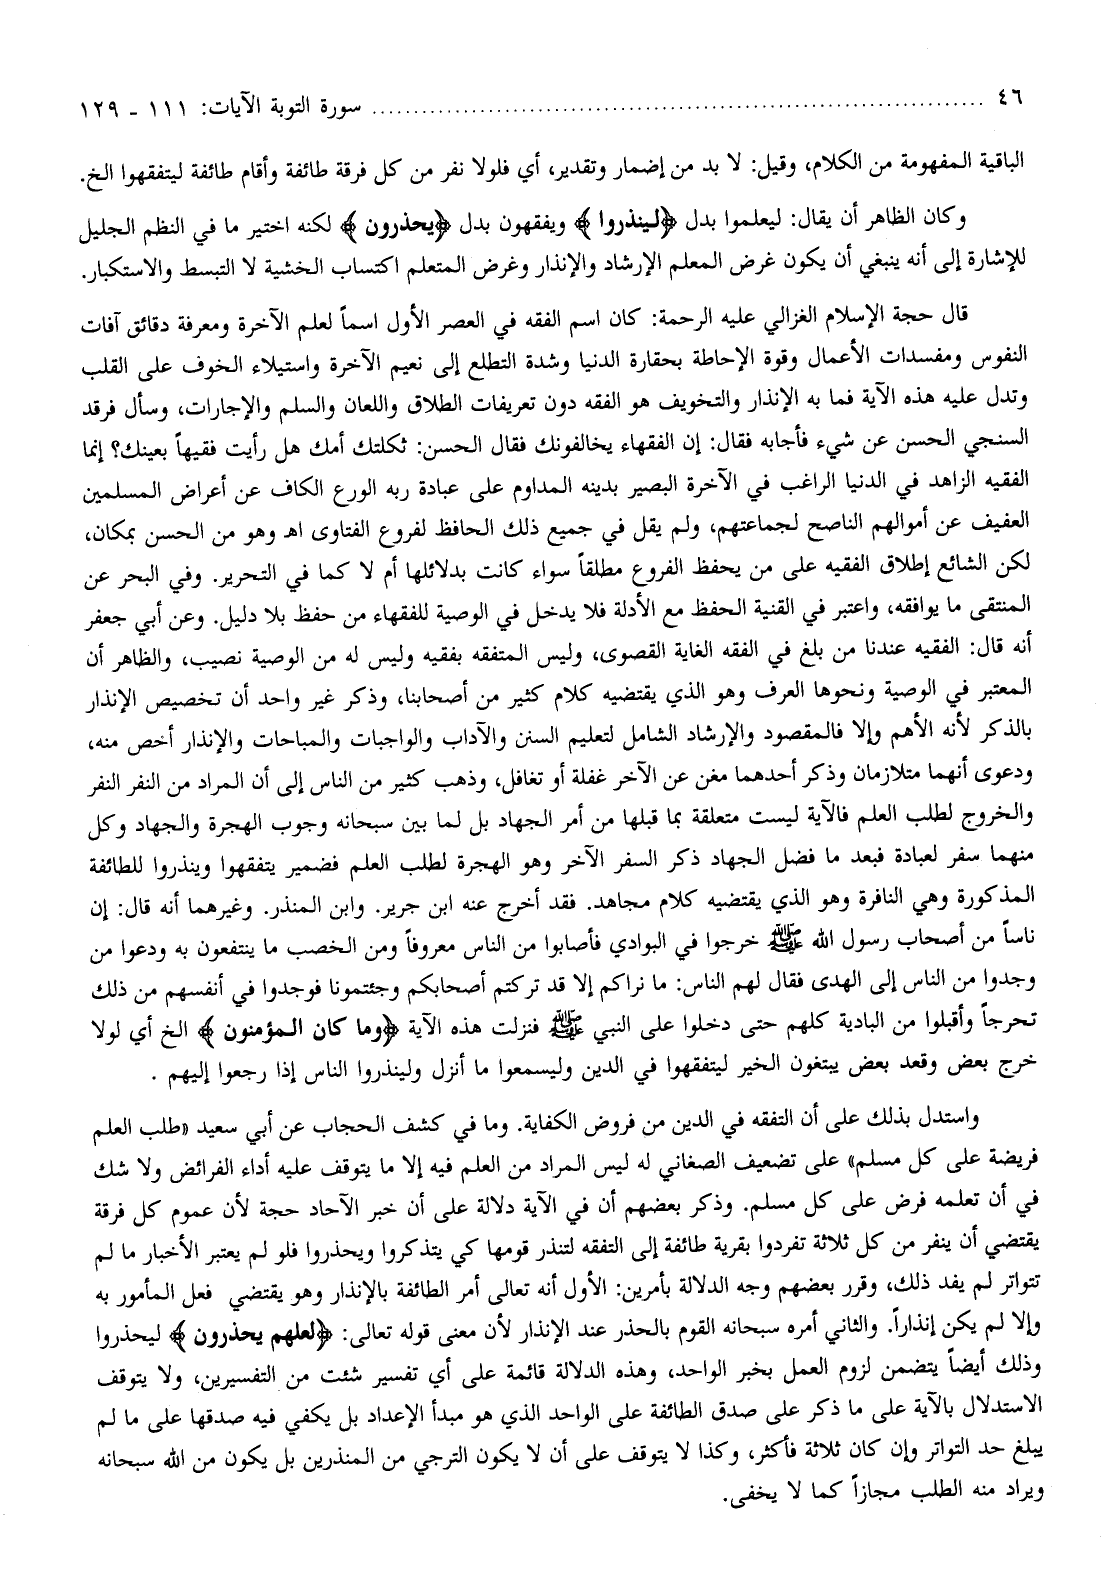 ٤٦ .......... سورة التوبة الآيات: ١١١ - ١٢٩
الباقية المفهومة من الكلام، وقيل: لا بد من إضمار وتقدير، أي فلولا نفر من كل فرقة طائفة وأقام طائفة ليتفقهوا الخ.
وكان الظاهر أن يقال: ليعلموا بدل ﴿لينذروا﴾ ويفقهون بدل ﴿يحذرون﴾ لكنه اختير ما في النظم الجليل
للإشارة إلى أنه ينبغي أن يكون غرض المعلم الإرشاد والإنذار وغرض المتعلم اكتساب الخشية لا التبسط والاستكبار.
قال حجة الإسلام الغزالي عليه الرحمة: كان اسم الفقه في العصر الأول اسماً لعلم الآخرة ومعرفة دقائق آفات
النفوس ومفسدات الأعمال وقوة الإحاطة بحقارة الدنيا وشدة التطلع إلى نعيم الآخرة واستيلاء الخوف على القلب
وتدل عليه هذه الآية فما به الإنذار والتخويف هو الفقه دون تعريفات الطلاق واللعان والسلم والإجارات، وسأل فرقد
السنجي الحسن عن شيء فأجابه فقال: إن الفقهاء يخالفونك فقال الحسن: ثكلتك أمك هل رأيت فقيهاً بعينك؟ إنما
الفقيه الزاهد في الدنيا الراغب في الآخرة البصير بدينه المداوم على عبادة ربه الورع الكاف عن أعراض المسلمين
العفيف عن أموالهم الناصح لجماعتهم، ولم يقل في جميع ذلك الحافظ لفروع الفتاوى اهـ وهو من الحسن بمكان،
لكن الشائع إطلاق الفقيه على من يحفظ الفروع مطلقاً سواء كانت بدلائلها أم لا كما في التحرير. وفي البحر عن
المنتقى ما يوافقه، واعتبر في القنية الحفظ مع الأدلة فلا يدخل في الوصية للفقهاء من حفظ بلا دليل. وعن أبي جعفر
أنه قال: الفقيه عندنا من بلغ في الفقه الغاية القصوى، وليس المتفقه بفقيه وليس له من الوصية نصيب، والظاهر أن
المعتبر في الوصية ونحوها العرف وهو الذي يقتضيه كلام كثير من أصحابنا، وذكر غير واحد أن تخصيص الإنذار
بالذكر لأنه الأهم وإلا فالمقصود والإرشاد الشامل لتعليم السنن والآداب والواجبات والمباحات والإنذار أخص منه،
ودعوى أنهما متلازمان وذكر أحدهما مغن عن الآخر غفلة أو تغافل، وذهب كثير من الناس إلى أن المراد من النفر النفر
والخروج لطلب العلم فالآية ليست متعلقة بما قبلها من أمر الجهاد بل لما بين سبحانه وجوب الهجرة والجهاد وكل
منهما سفر لعبادة فبعد ما فضل الجهاد ذكر السفر الآخر وهو الهجرة لطلب العلم فضمير يتفقهوا وينذروا للطائفة
المذكورة وهي النافرة وهو الذي يقتضيه كلام مجاهد. فقد أخرج عنه ابن جرير. وابن المنذر. وغيرهما أنه قال: إن
ناساً من أصحاب رسول الله ﷺ خرجوا في البوادي فأصابوا من الناس معروفاً ومن الخصب ما ينتفعون به ودعوا من
وجدوا من الناس إلى الهدى فقال لهم الناس: ما نراكم إلا قد تركتم أصحابكم وجئتمونا فوجدوا في أنفسهم من ذلك
تحرجاً وأقبلوا من البادية كلهم حتى دخلوا على النبي ﷺ فنزلت هذه الآية ﴿وما كان المؤمنون﴾ الخ أي لولا
خرج بعض وقعد بعض يبتغون الخير ليتفقهوا في الدين وليسمعوا ما أنزل ولينذروا الناس إذا رجعوا إليهم .
واستدل بذلك على أن التفقه في الدين من فروض الكفاية. وما في كشف الحجاب عن أبي سعيد «طلب العلم
فريضة على كل مسلم» على تضعيف الصغاني له ليس المراد من العلم فيه إلا ما يتوقف عليه أداء الفرائض ولا شك
في أن تعلمه فرض على كل مسلم. وذكر بعضهم أن في الآية دلالة على أن خبر الآحاد حجة لأن عموم كل فرقة
يقتضي أن ينفر من كل ثلاثة تفردوا بقرية طائفة إلى التفقه لتنذر قومها كي يتذكروا ويحذروا فلو لم يعتبر الأخبار ما لم
تتواتر لم يفد ذلك، وقرر بعضهم وجه الدلالة بأمرين: الأول أنه تعالى أمر الطائفة بالإنذار وهو يقتضي فعل المأمور به
وإلا لم يكن إنذاراً. والثاني أمره سبحانه القوم بالحذر عند الإنذار لأن معنى قوله تعالى: ﴿لعلهم يحذرون﴾ ليحذروا
وذلك أيضاً يتضمن لزوم العمل بخبر الواحد، وهذه الدلالة قائمة على أي تفسير شئت من التفسيرين، ولا يتوقف
الاستدلال بالآية على ما ذكر على صدق الطائفة على الواحد الذي هو مبدأ الإعداد بل يكفي فيه صدقها على ما لم
يبلغ حد التواتر وإن كان ثلاثة فأكثر، وكذا لا يتوقف على أن لا يكون الترجي من المنذرين بل يكون من الله سبحانه
ويراد منه الطلب مجازاً كما لا يخفى.